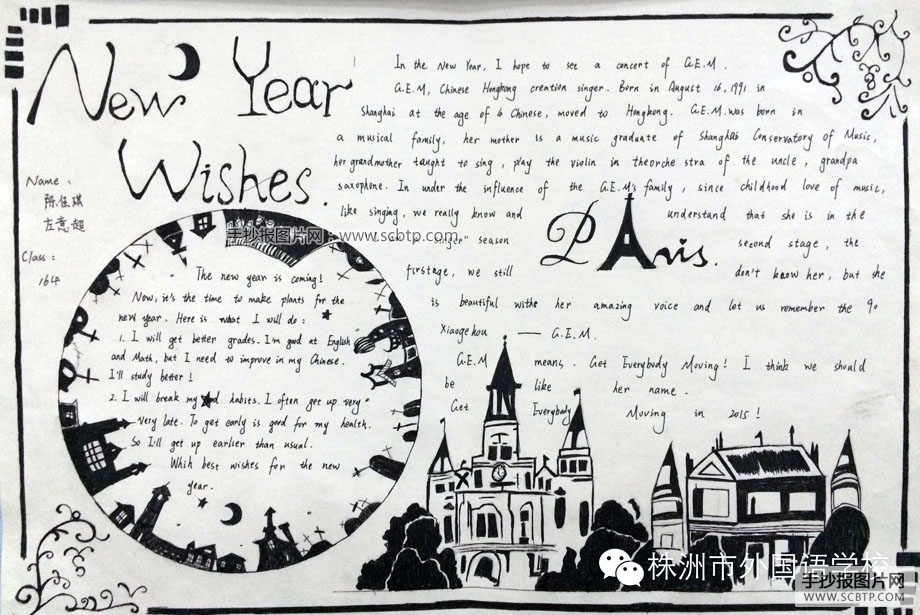 New Year
Wishes.
Name:
陈佳琪
左意超
Class:
164
The new year is coming!
Now, it's the time to make plants for the
new year. Here is what I will do:
1. I will get better grades. I'm good at English
and Math, but I need to improve in my Chinese.
I'll study better!
2. I will break my habits. I often get up very
very late. To get early is good for my health.
So I'll get up earlier than usual.
Whih best wishes for the new
year.
In the New Year, I hope to see a concert of G.E.M.
G.E.M, Chinese Hongkong creation singer. Born in August 16, 1991 in
Shanghai at the age of 4 Chinese, moved to Hongkong. G.E.M. was born in
a musical family, her mother is a music graduate of Shanghai Conservatory of Music,
her grandmother taught to sing, play the violin in theorche stra of the uncle, grandpa
saxophone. In under the influence of the G.E.M's family, since childhood love of music,
like singing, we really know and understand that she is in the
singer" season second stage, the
firstage, we still don't know her, but she
Paris.
is beautiful withe her amazing voice and let us remember the 90
Xiaogehou — G.E.M.
G.E.M means, Get Everybody Moving! I think we should
be like her name.
Get Everybody Moving in 2015!
手抄报图片网:www.scbtp.com
株洲市外国语学校
手抄报图片网
WWW.SCBTP.COM